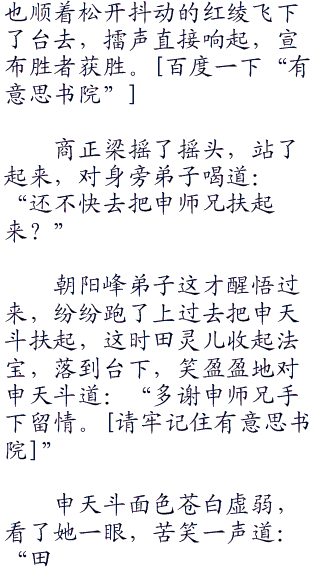 也顺着松开抖动的红绫飞下
了台去，擂声直接响起，宣
布胜者获胜。[百度一下“有
意思书院”]
商正梁摇了摇头，站了
起来，对身旁弟子喝道：
“还不快去把申师兄扶起
来？”
朝阳峰弟子这才醒悟过
来，纷纷跑了上过去把申天
斗扶起，这时田灵儿收起法
宝，落到台下，笑盈盈地对
申天斗道：“多谢申师兄手
下留情。[请牢记住有意思书
院]”
申天斗面色苍白虚弱，
看了她一眼，苦笑一声道：
“田